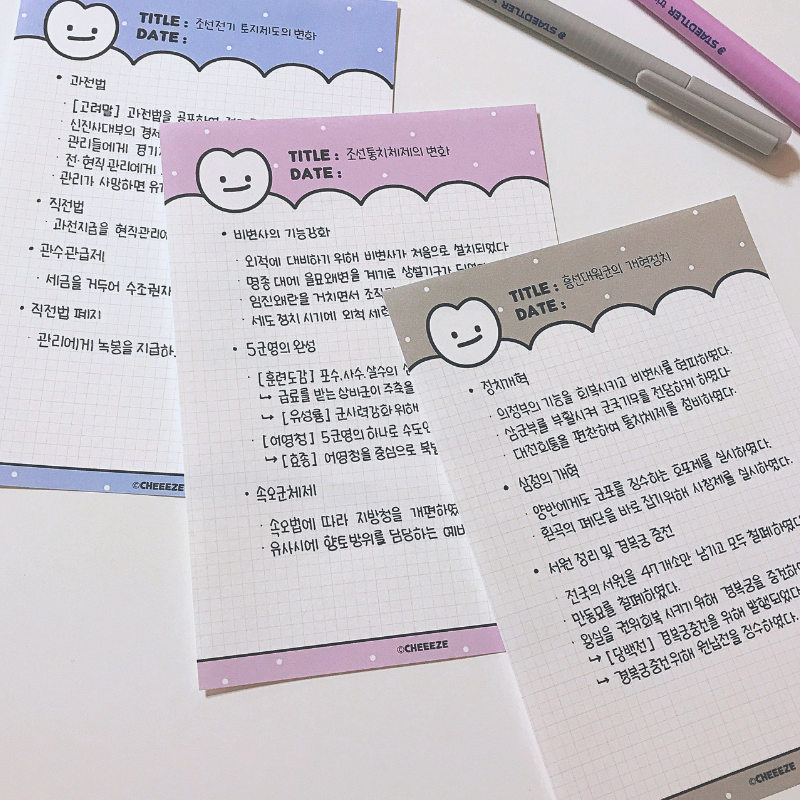 TITLE : 조선전기 토지제도의 변화
DATE :
• 과전법
· [고려말] 과전법을 공포하여
신진사대부의 경제
· 관리들에게 경기
· 전·현직 관리에게
· 관리가 사망하면 유
• 직전법
· 과전지급을 현직관리
• 관수관급제
· 세금을 거두어 수조권자
• 직전법 폐지
· 관리에게 녹봉을 지급하
©CHEEEZE
TITLE : 조선통치체제의 변화
DATE :
• 비변사의 기능강화
· 외적에 대비하기 위해 비변사가 처음으로 설치되었다
· 명종 대에 을묘왜변을 계기로 상설기구가
· 임진왜란을 거치면서 조직
· 세도 정치 시기에 외척 세력
• 5군영의 완성
· [훈련도감] 포수.사수.살수의
↳ 급료를 받는 상비군이 주축을
↳ [유성룡] 군사력강화 위해
· [어영청] 5군영의 하나로 수도
↳ [효종] 어영청을 중심으로 북벌
• 속오군체제
· 속오법에 따라 지방청을 개편하였
· 유사시에 향토방위를 담당하는 예비
©CHEEEZE
TITLE : 흥선대원군의 개혁정치
DATE :
• 정치개혁
· 의정부의 기능을 회복시키고 비변사를 혁파하였다.
· 삼군부를 부활시켜 군국기무를 전담하게 하였다
· 대전회통을 편찬하여 통치체제를 정비하였다.
• 삼정의 개혁
· 양반에게도 군포를 징수하는 호포제를 실시하였다.
· 환곡의 폐단을 바로 잡기위해 사창제를 실시하였다.
• 서원 정리 및 경복궁 중건
· 전국의 서원을 47개소만 남기고 모두 철폐하였다
· 만동묘를 철폐하였다.
· 왕실을 권위회복 시키기 위해 경복궁을 중건하
↳ [당백전] 경복궁중건을 위해 발행되었다
↳ 경복궁중건위해 원납전을 징수하였다.
©CHEEEZE
STAEDTLER
STAEDTLER